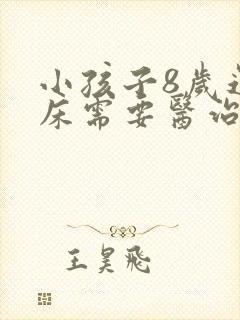 小孩子8歲
床需要醫治
王昊飛